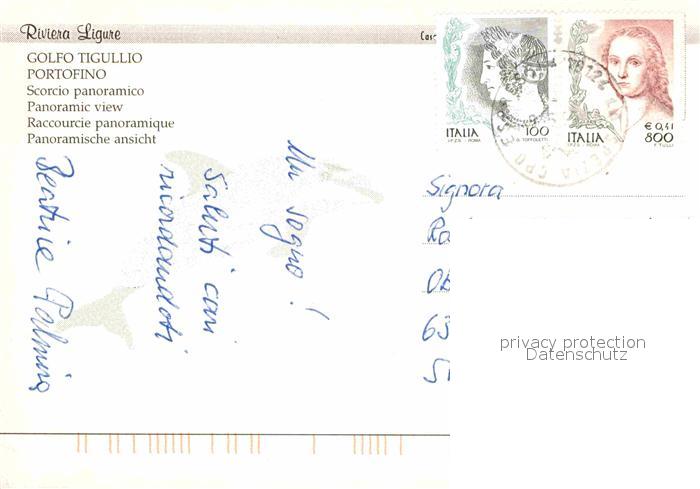 Riviera Ligure
GOLFO TIGULLIO
PORTOFINO
Scorcio panoramico
Panoramic view
Raccourcie panoramique
Panoramische ansicht
Un sogno!
Saluti cari
ricordandoti
Beatrice Palmira
ITALIA 100
I.P.Z.S. - ROMA
ITALIA € 0,41
800
I.P.Z.S. - ROMA
Signora
63
privacy protection
Datenschutz